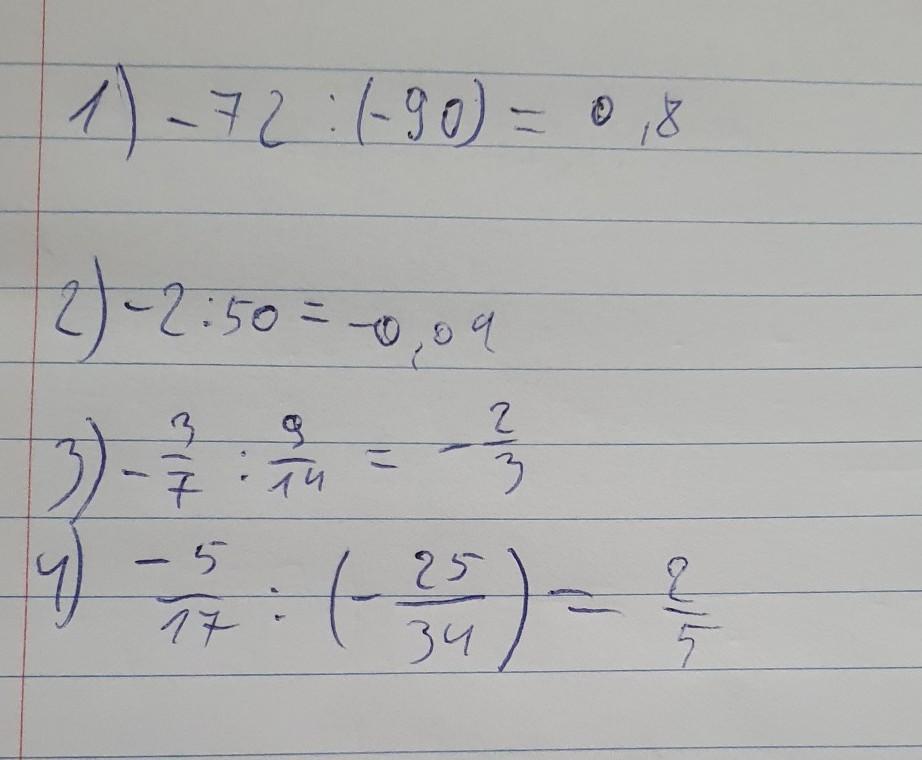 1) -72 : (-90) = 0,8
2) -2 : 50 = -0,04
3) -3/7 : 9/14 = -2/3
4) -5/17 : (-25/34) = 2/5